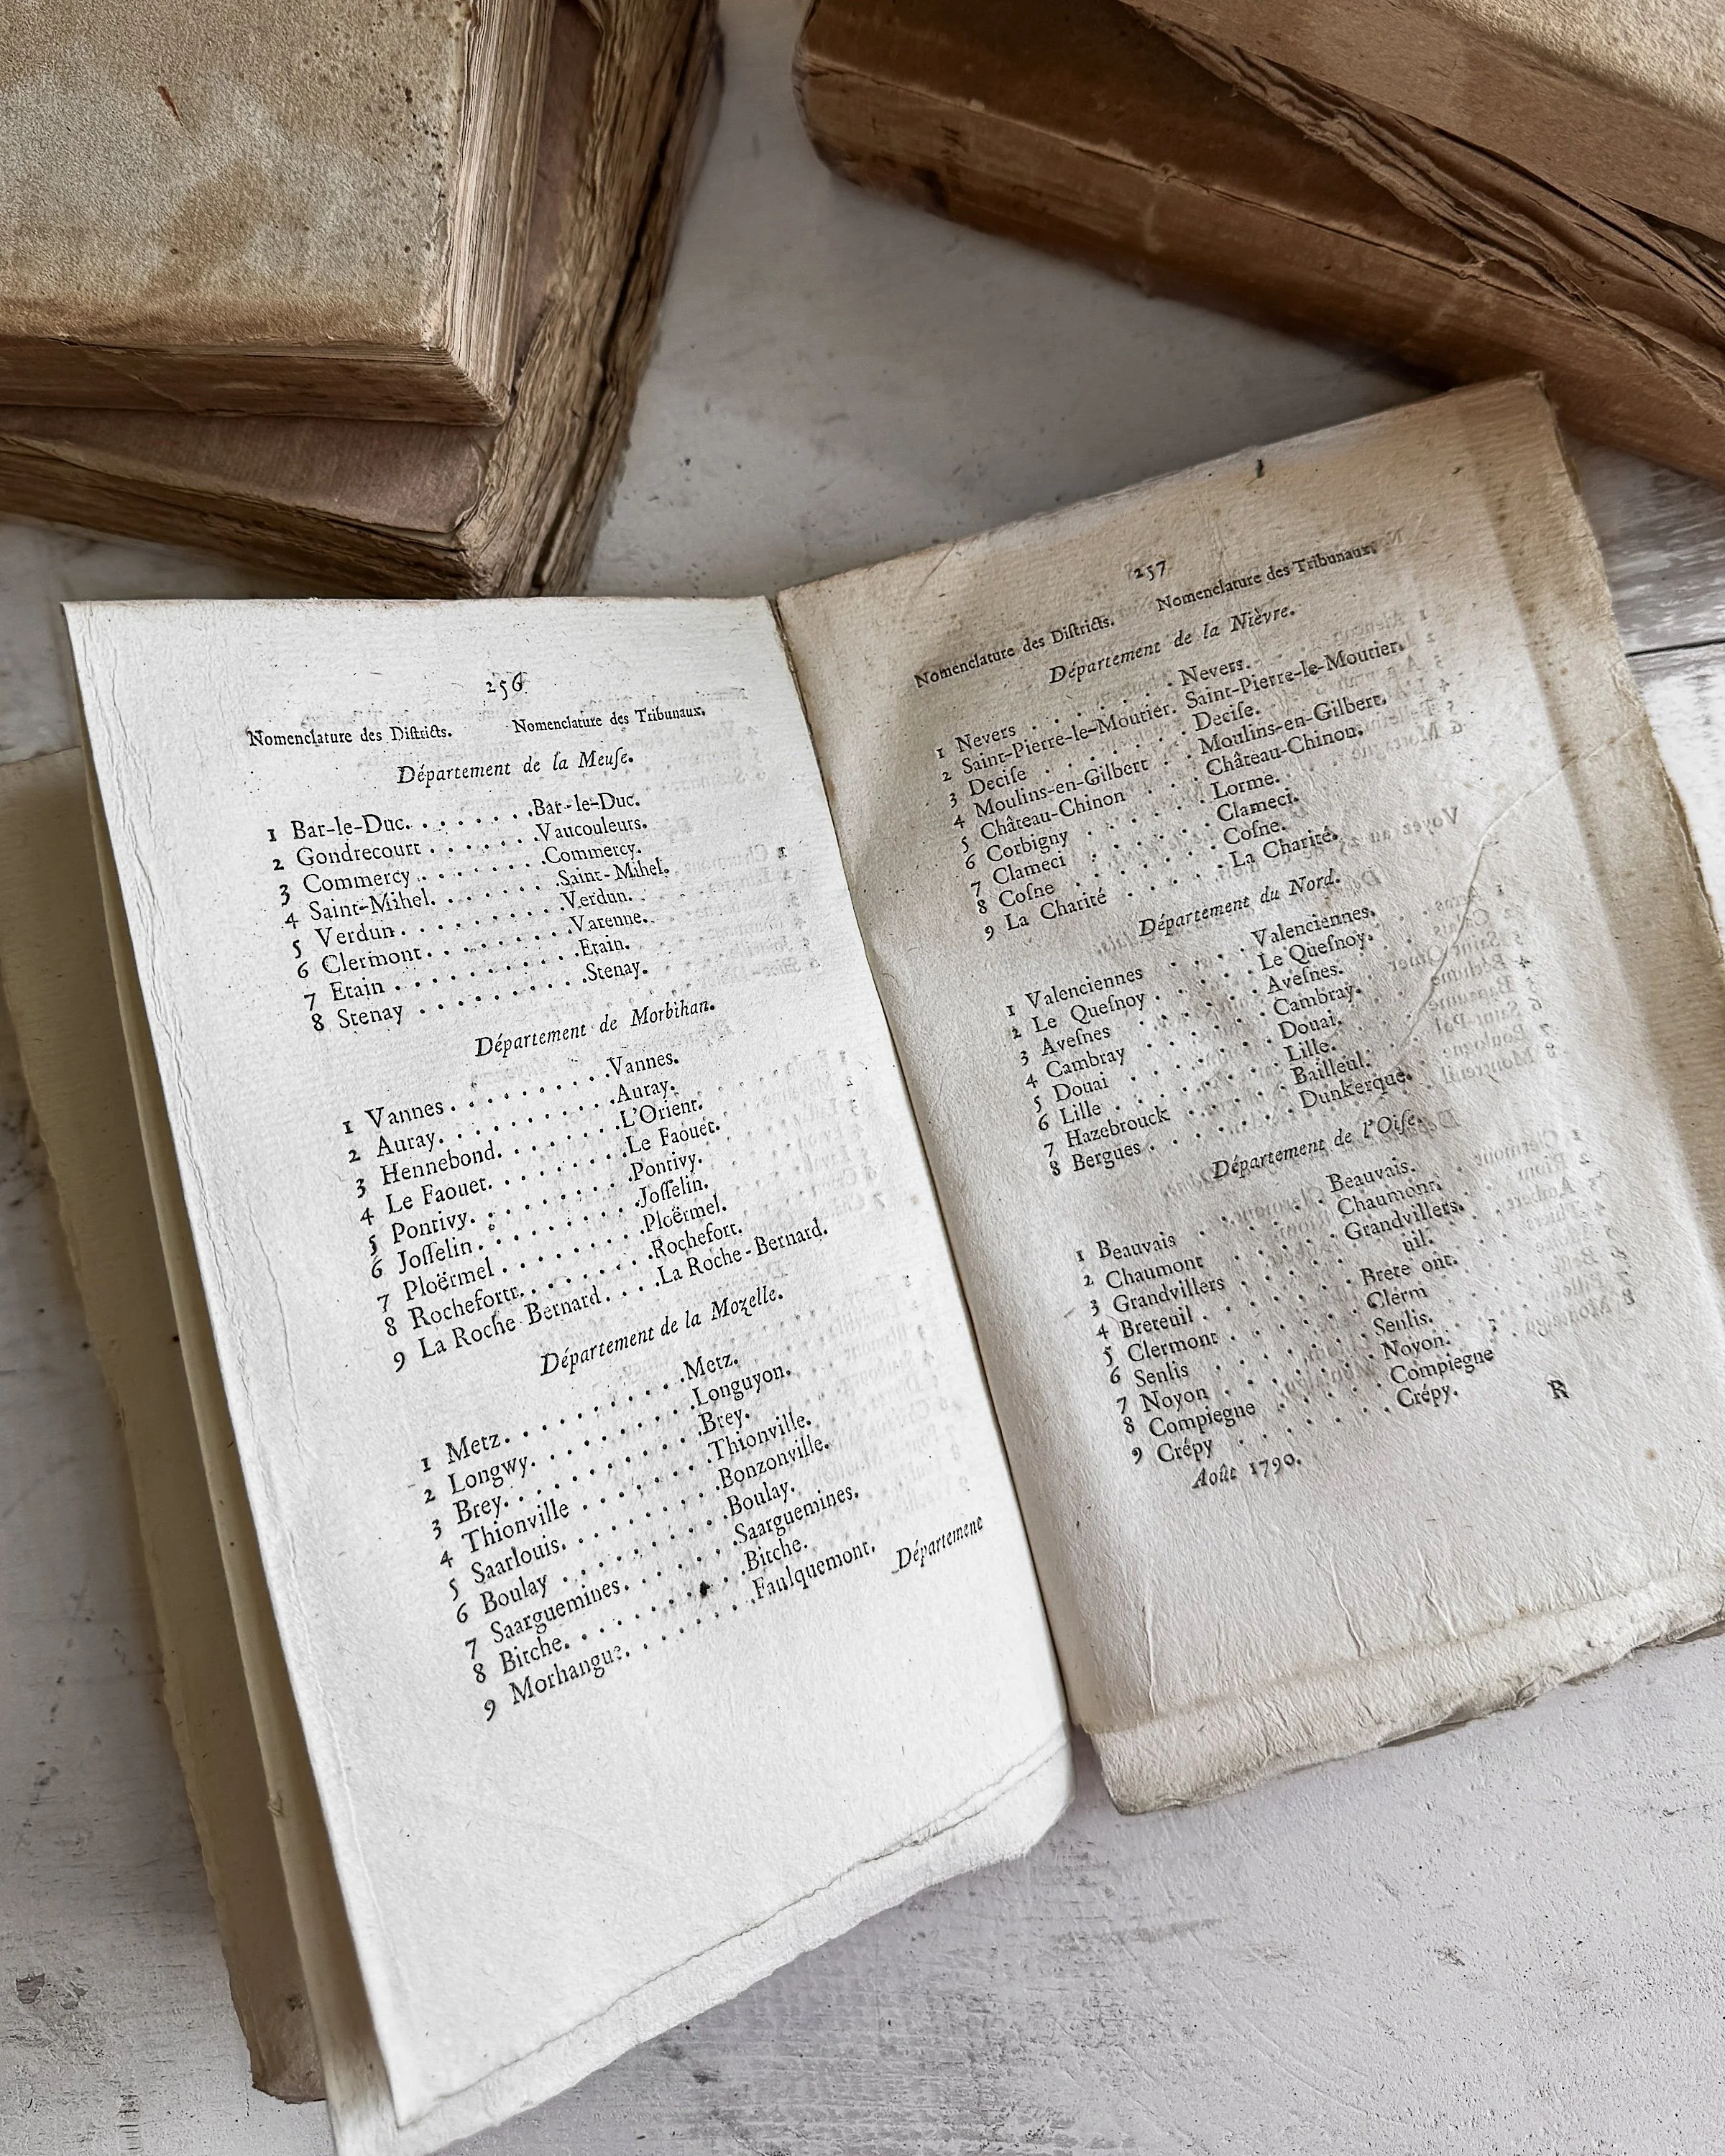 256
Nomenclature des Diſtricts. Nomenclature des Tribunaux.
Département de la Meuſe.
1 Bar-le-Duc. . . . . . . . Bar-le-Duc.
2 Gondrecourt . . . . . . . Vaucouleurs.
3 Commercy . . . . . . . . Commercy.
4 Saint-Mihel. . . . . . . . Saint-Mihel.
5 Verdun. . . . . . . . . . Verdun.
6 Clermont. . . . . . . . . Varenne.
7 Etain . . . . . . . . . . Etain.
8 Stenay . . . . . . . . . . Stenay.
Département de Morbihan.
1 Vannes . . . . . . . . . . Vannes.
2 Auray. . . . . . . . . . . Auray.
3 Hennebond. . . . . . . . L'Orient.
4 Le Faouet. . . . . . . . . Le Faouet.
5 Pontivy. . . . . . . . . . Pontivy.
6 Joſſelin . . . . . . . . . . Joſſelin.
7 Ploërmel . . . . . . . . . Ploërmel.
8 Rochefortt. . . . . . . . Rochefort.
9 La Roche Bernard. . . . La Roche-Bernard.
Département de la Mozelle.
1 Metz. . . . . . . . . . . Metz.
2 Longwy. . . . . . . . . . Longuyon.
3 Brey. . . . . . . . . . . Brey.
4 Thionville . . . . . . . . Thionville.
5 Saarlouis. . . . . . . . . Bonzonville.
6 Boulay . . . . . . . . . . Boulay.
7 Saarguemines. . . . . . . Saarguemines.
8 Bitche. . . . . . . . . . Bitche.
9 Morhangue. . . . . . . . Faulquemont.
Département
257
Nomenclature des Diſtricts. Nomenclature des Tribunaux.
Département de la Nièvre.
1 Nevers . . . . . . . . Nevers.
2 Saint-Pierre-le-Moutier. Saint-Pierre-le-Moutier.
3 Deciſe . . . . . . . . Deciſe.
4 Moulins-en-Gilbert . . Moulins-en-Gilbert.
5 Château-Chinon . . . Château-Chinon.
6 Corbigny . . . . . . . Lorme.
7 Clameci . . . . . . . . Clameci.
8 Coſne . . . . . . . . . Coſne.
9 La Charité . . . . . . La Charité.
Département du Nord.
1 Valenciennes . . . . . Valenciennes.
2 Le Queſnoy . . . . . . Le Queſnoy.
3 Aveſnes . . . . . . . . Aveſnes.
4 Cambray . . . . . . . Cambray.
5 Douai . . . . . . . . . Douai.
6 Lille . . . . . . . . . . Lille.
7 Hazebrouck . . . . . . Bailleul.
8 Bergues . . . . . . . . Dunkerque.
Département de l'Oiſe.
1 Beauvais . . . . . . . Beauvais.
2 Chaumont . . . . . . Chaumont.
3 Grandvillers . . . . . Grandvillers.
4 Breteuil . . . . . . . . Brete uil.
5 Clermont . . . . . . . Clerm ont.
6 Senlis . . . . . . . . . Senlis.
7 Noyon . . . . . . . . Noyon.
8 Compiegne . . . . . . Compiegne
9 Crépy . . . . . . . . . Crépy.
Août 1790. R